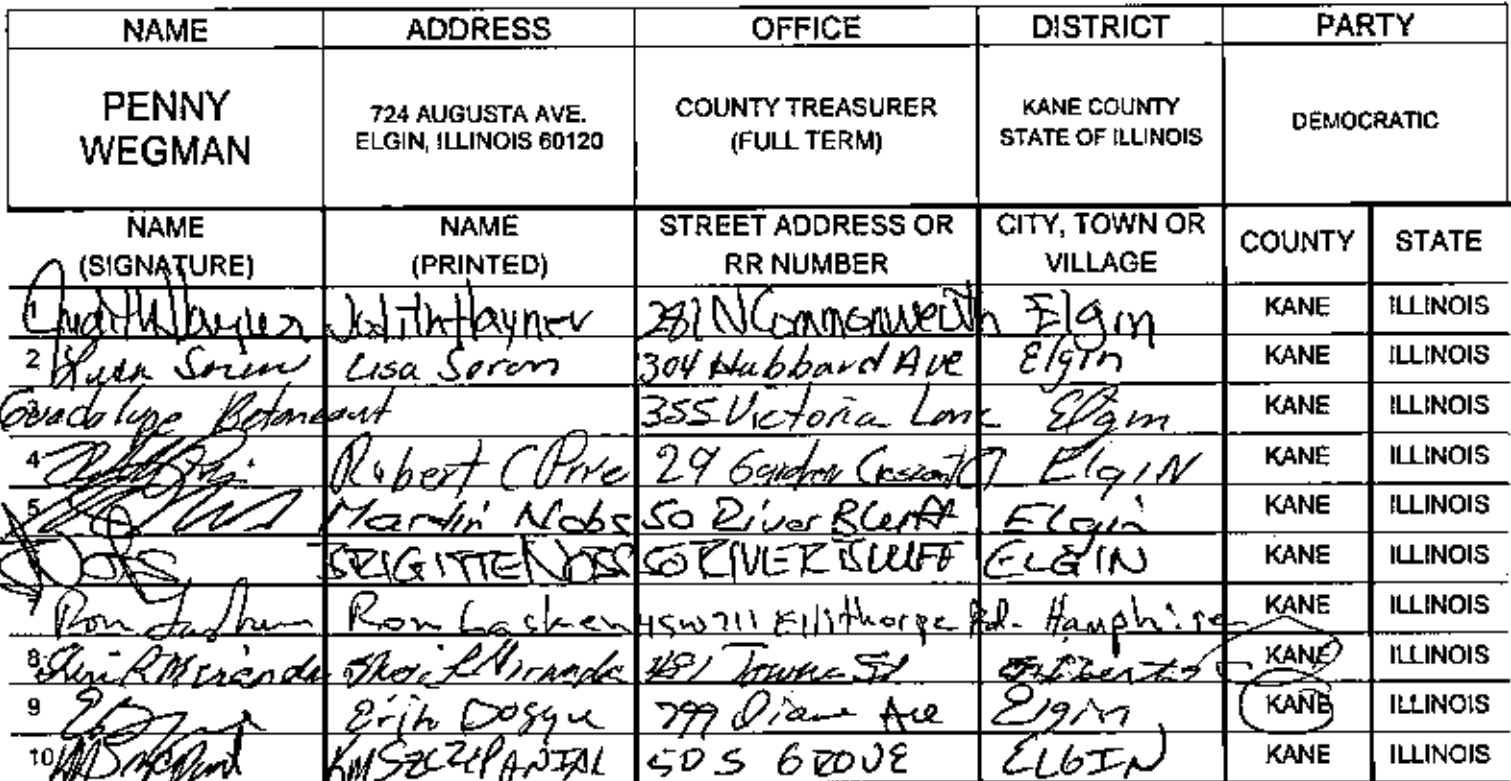 NAME ADDRESS OFFICE DISTRICT PARTY
PENNY WEGMAN 724 AUGUSTA AVE. ELGIN, ILLINOIS 60120 COUNTY TREASURER (FULL TERM) KANE COUNTY STATE OF ILLINOIS DEMOCRATIC
NAME (SIGNATURE) NAME (PRINTED) STREET ADDRESS OR RR NUMBER CITY, TOWN OR VILLAGE COUNTY STATE
1 Judith Hayner Judith Hayner 281 N Commonwealth Elgin KANE ILLINOIS
2 Lisa Soren 304 Hubbard Ave Elgin KANE ILLINOIS
Guadalupe 355 Victoria Lane Elgin KANE ILLINOIS
4 Robert C 29 Elgin KANE ILLINOIS
5 Martin Nobs 50 River Bluff Elgin KANE ILLINOIS
BRIGITTE NOBS 50 RIVER BLUFF ELGIN KANE ILLINOIS
7 Ron Ron 45W711 Ellithorpe Rd. KANE ILLINOIS
8 Miranda Miranda KANE ILLINOIS
9 Erin 799 Diane Ave Elgin KANE ILLINOIS
10 50 S GROVE ELGIN KANE ILLINOIS